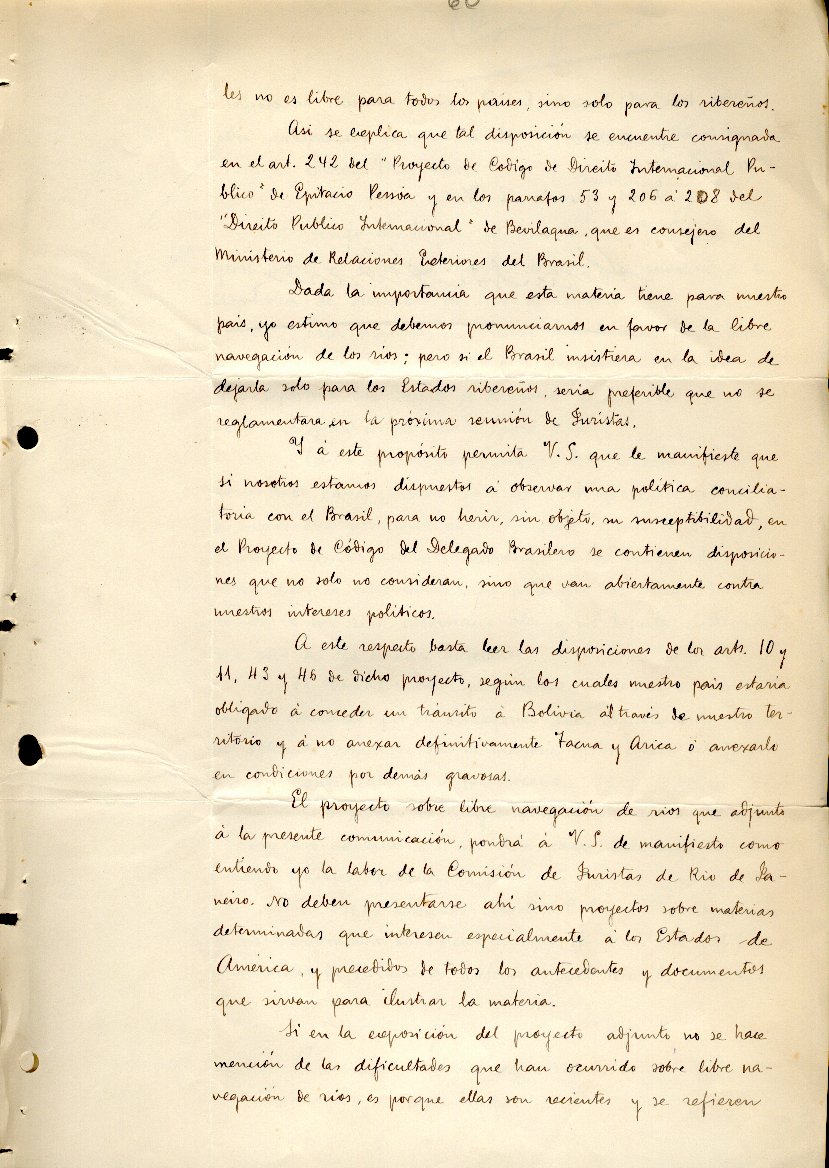 60
les no es libre para todos los países, sino solo para los ribereños.
Asi se explica que tal disposición se encuentre consignada
en el art. 242 del "Proyecto de Codigo de Direito Internacional Pu-
blico" de Epitacio Pessôa y en los parrafos 53 y 206 á 208 del
"Direito Publico Internacional" de Bevilaqua, que es consejero del
Ministerio de Relaciones Exteriores del Brasil.
Dada la importancia que esta materia tiene para nuestro
país, yo estimo que debemos pronunciarnos en favor de la libre
navegación de los ríos; pero si el Brasil insistiera en la idea de
dejarla solo para los Estados ribereños, seria preferible que no se
reglamentara en la próxima reunión de Juristas.
Y á este propósito permita V. S. que le manifieste que
si nosotros estamos dispuestos á observar una política concilia-
toria con el Brasil, para no herir, sin objeto, su susceptibilidad, en
el Proyecto de Código del Delegado Brasilero se contienen disposicio-
nes que no solo no consideran, sino que van abiertamente contra
nuestros intereses políticos.
A este respecto basta leer las disposiciones de los arts. 10 y
11, 43 y 46 de dicho proyecto, según los cuales nuestro pais estaria
obligado á conceder un tránsito á Bolivia al través de nuestro ter-
ritorio y á no anexar definitivamente Tacna y Arica ó anexarlo
en condiciones por demás gravosas.
El proyecto sobre libre navegación de rios que adjunto
á la presente comunicación, pondrá á V. S. de manifiesto como
entiendo yo la labor de la Comisión de Juristas de Rio de Ja-
neiro. No deben presentarse ahí sino proyectos sobre materias
determinadas que interesen especialmente á los Estados de
América, y precedidos de todos los antecedentes y documentos
que sirvan para ilustrar la materia.
Si en la exposición del proyecto adjunto no se hace
mención de las dificultades que han ocurrido sobre libre na-
vegación de ríos, es porque ellas son recientes y se refieren